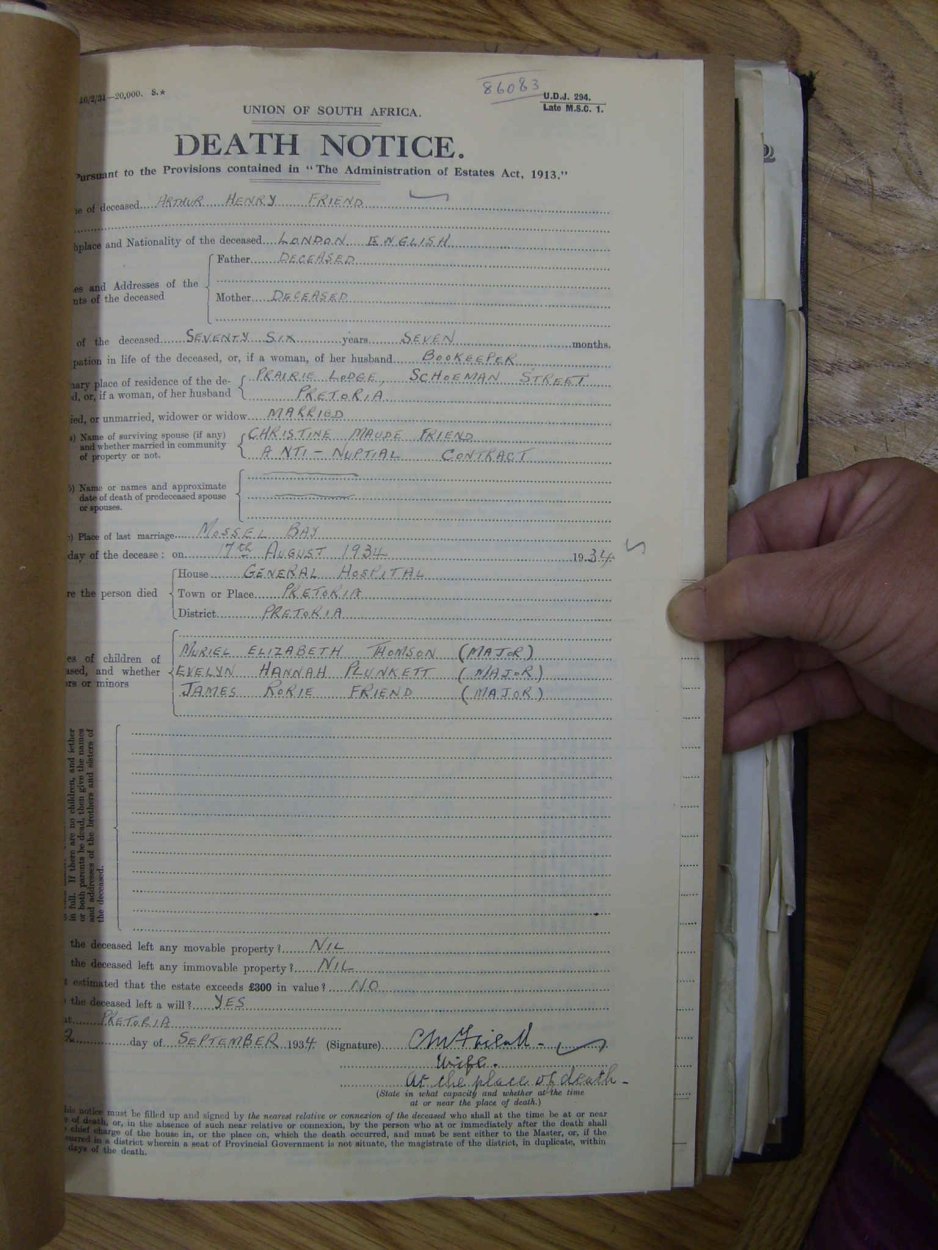 86083
10/2/34—20,000. S.*
U.D.J. 294.
Late M.S.C. 1.
UNION OF SOUTH AFRICA.
DEATH NOTICE.
Pursuant to the Provisions contained in "The Administration of Estates Act, 1913."
e of deceased ARTHUR HENRY FRIEND
hplace and Nationality of the deceased LONDON ENGLISH
Father DECEASED
es and Addresses of the
nts of the deceased
Mother DECEASED
of the deceased SEVENTY SIX years SEVEN months.
pation in life of the deceased, or, if a woman, of her husband BOOKEEPER
nary place of residence of the de- PRAIRIE LODGE, SCHOEMAN STREET
d, or, if a woman, of her husband PRETORIA
ied, or unmarried, widower or widow MARRIED
a) Name of surviving spouse (if any) CHRISTINE MAUDE FRIEND
and whether married in community
of property or not. ANTI-NUPTIAL CONTRACT
b) Name or names and approximate
date of death of predeceased spouse
or spouses.
c) Place of last marriage MOSSEL BAY
day of the decease: on 17th AUGUST 1934 1934
House GENERAL HOSPITAL
re the person died Town or Place PRETORIA
District PRETORIA
MURIEL ELIZABETH THOMSON (MAJOR)
es of children of
ased, and whether EVELYN HANNAH PLUNKETT (MAJOR)
ors or minors JAMES RORIE FRIEND (MAJOR)
in full. If there are no children, and either
or both parents be dead, then give the names
and addresses of the brothers and sisters of
the deceased.
the deceased left any movable property? NIL
the deceased left any immovable property? NIL
t estimated that the estate exceeds £300 in value? NO
the deceased left a will? YES
at PRETORIA
day of SEPTEMBER 1934 (Signature) CM Friend
Wife.
At the place of death
(State in what capacity and whether at the time
at or near the place of death.)
his notice must be filled up and signed by the nearest relative or connexion of the deceased who shall at the time be at or near
e of death, or, in the absence of such near relative or connexion, by the person who at or immediately after the death shall
chief charge of the house in, or the place on, which the death occurred, and must be sent either to the Master, or, if the
curred in a district wherein a seat of Provincial Government is not situate, the magistrate of the district, in duplicate, within
days of the death.